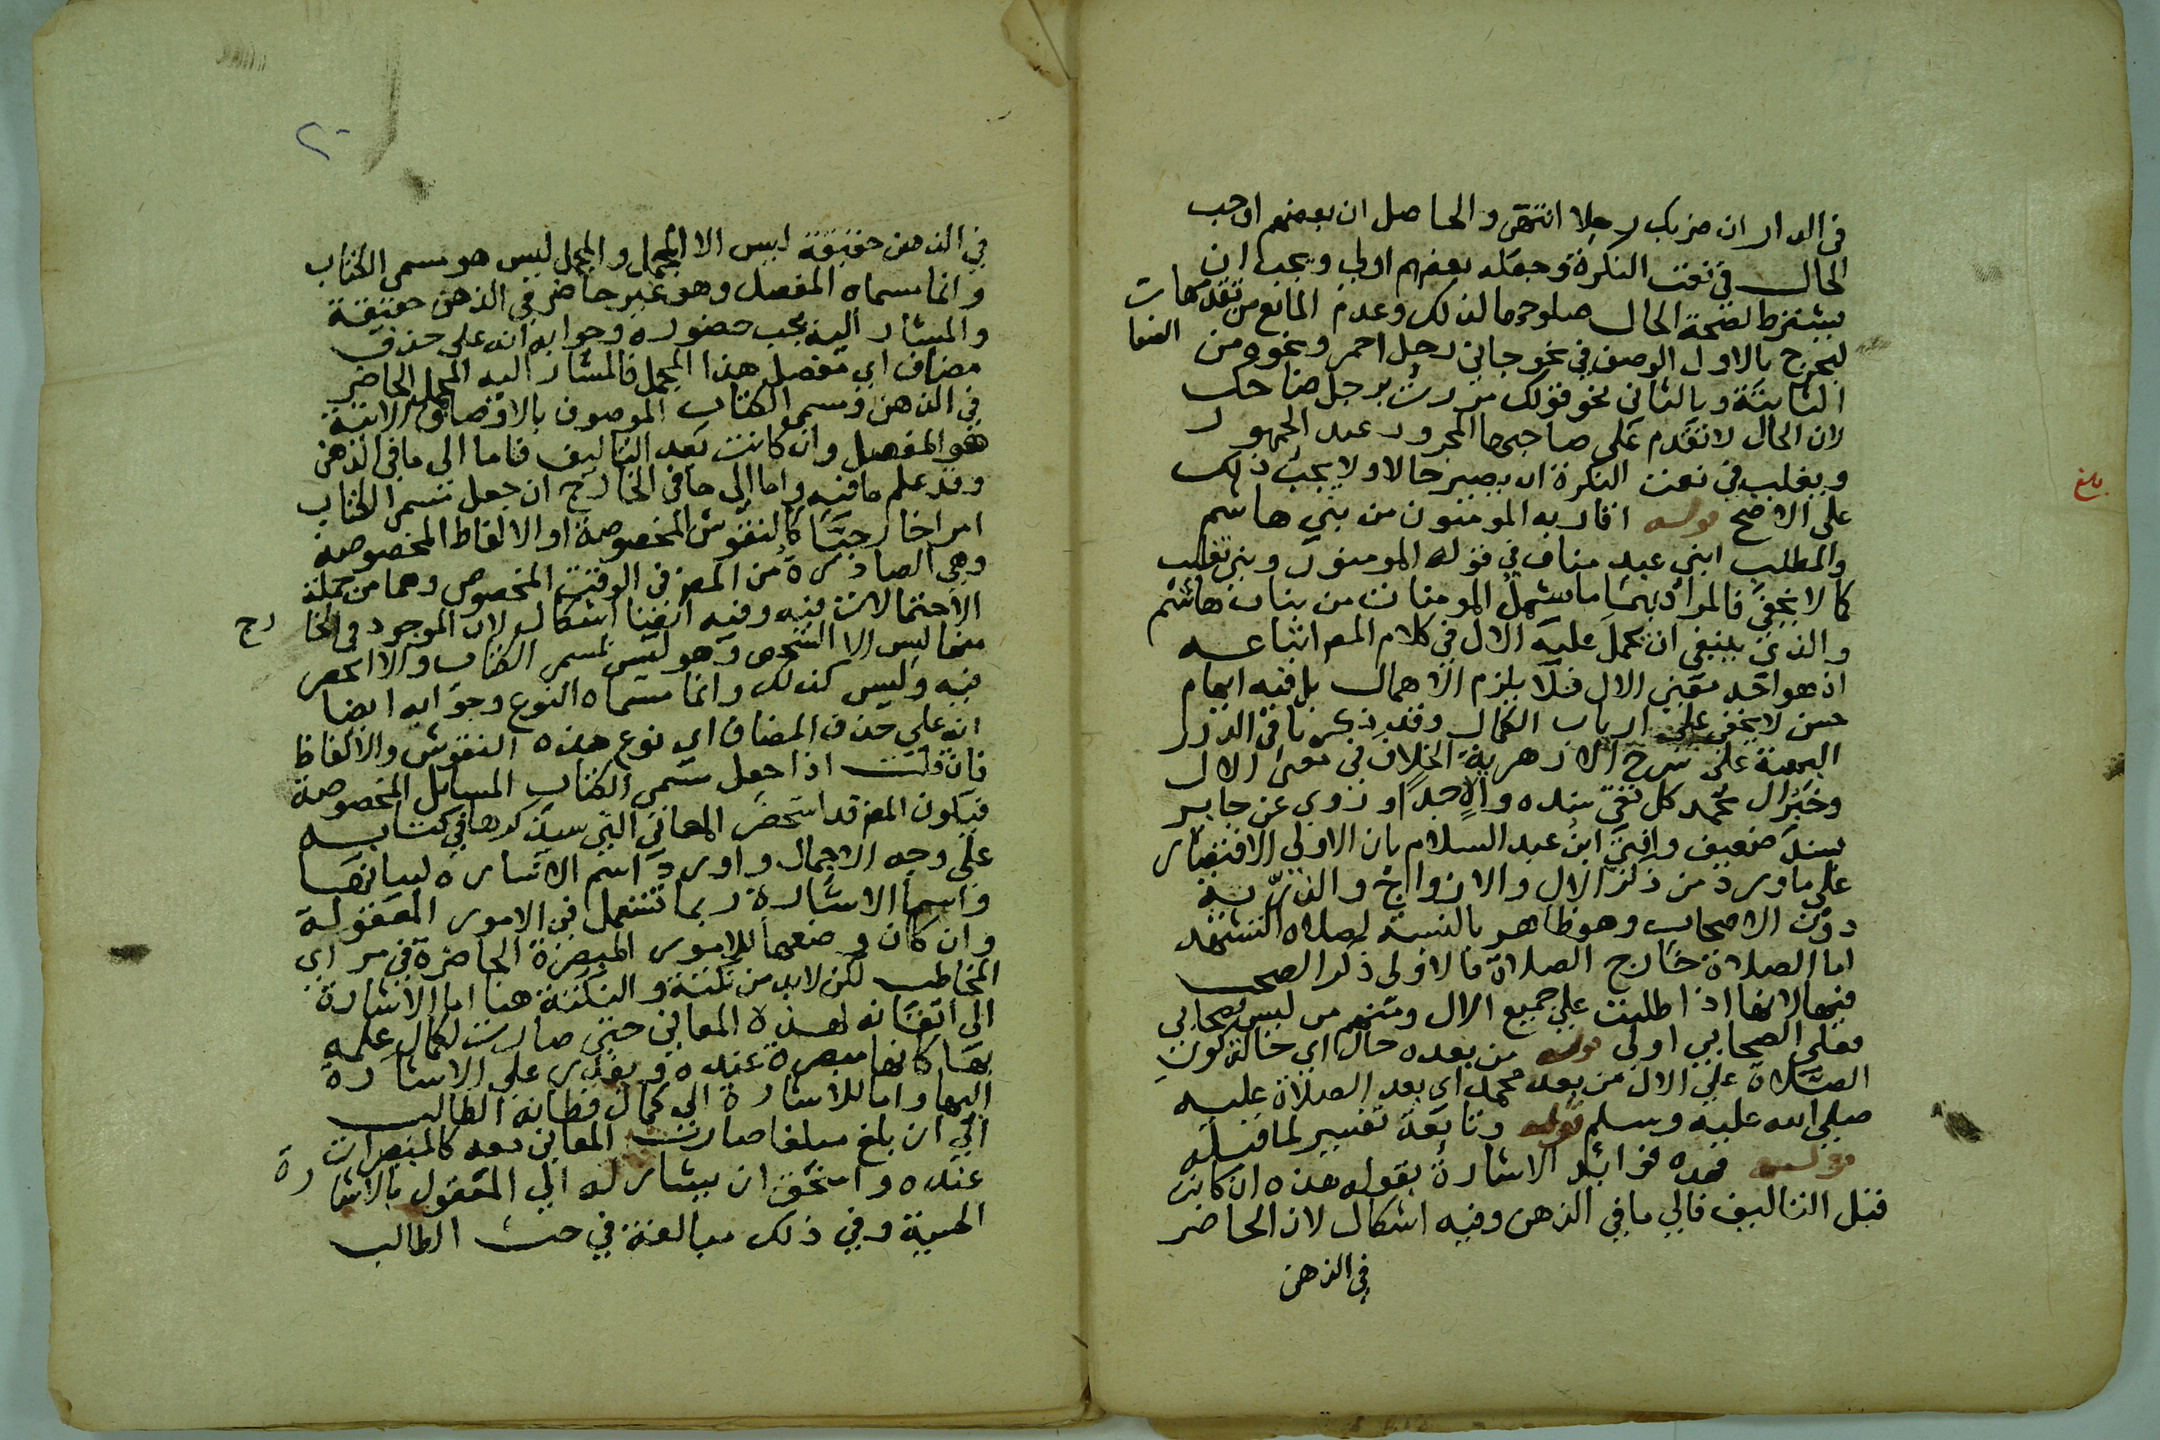 في الدار ان ضربك رجلا انتهى والحاصل ان بعضهم اوجب
الحال في نعت النكرة وجعله بعضهم اولى ويجب ان
يشترط لصحة الحال صلوحها لذلك وعدم المانع من تقدمها
ليخرج بالاول الوصف في نحو جاني رجل احمر ونحوه من الصفات
الثابتة وبالثاني نحو قولك مررت برجل ضاحك
لان الحال لا تقدم على صاحبها المجرور عند الجمهور
ويغلب في نعت النكرة ان يصير حالا ولا يجب ذلك
على الاصح قوله اقاربه المومنون من بني هاشم
والمطلب ابني عبد مناف في قوله المومنون وبني تغليب
كما لا يخفى فالمراد بهما ما يشمل المومنات من بنات هاشم
والذي ينبغي ان يحمل عليه الال في كلام المص اتباعه
اذ هو احد معيني الال فلا يلزم الاهمال بل فيه ايهام
حسن لا يخفى على ارباب الكمال وقد ذكرنا في الدرر
البهية على شرح الازهرية الخلاف في معنى الال
وخبر ال محمد كل تقي سنده والا جدا وروي عن جابر
بسند ضعيف وافتى ابن عبد السلام بان الاولى الاقتصار
على ما ورد من ذكر الال والازواج والذرية
دون الاصحاب وهو ظاهر بالنسبة لصلاة التشهد
اما الصلاة خارج الصلاة فالاولى ذكر الصحب
فيها لانها اذا طلبت على جميع الال ومنهم من ليس بصحابي
فعلى الصحابي اولى قوله من بعده حال اي حالة كون
الصلاة على الال من بعد محمد اي بعد الصلاة عليه
صلى الله عليه وسلم قوله وتابعه تفسير لما قبله
قوله فهذه فوائد الاشارة بقوله هذه ان كانت
قبل التاليف فالى ما في الذهن وفيه اشكال لان الحاضر
في الذهن
بلغ
٢٠
في الذهن حقيقة ليس الا المجمل والمجمل ليس هو مسمى الكتاب
وانما مسماه المفصل وهو غير حاضر في الذهن حقيقة
والمشار اليه يجب حضوره وجوابه انه على حذف
مضاف اي مفصل هذا المجمل فالمشار اليه المجمل الحاضر
في الذهن ومسمى الكتاب الموصوف بالاوصاف الاتية
هو المفصل وان كانت بعد التاليف فاما الى ما في الذهن
وقد علم ما فيه واما الى ما في الخارج ان جعل مسمى الكتاب
امرا خارجيا كالنقوش المخصوصة او الالفاظ المخصوصة
وهي الصادرة من المص في الوقت المخصوص وهما من جملة
الاحتمالات فيه وفيه ايضا اشكال لان الموجود في الخارج
منها ليس الا الشخص وهو ليس مسمى الكتاب والا انحصر
فيه وليس كذلك وانما مسماه النوع وجوابه ايضا
انه على حذف المضاف اي نوع هذه النقوش والالفاظ
فان قلت اذا جعل مسمى الكتاب المسائل المخصوصة
فيكون المص قد استحضر المعاني التي سيذكرها في كتابه
على وجه الاجمال واورد اسم الاشارة لبيانها
واسما الاشارة ربما تستعمل في الامور المعقولة
وان كان وضعها للامور المبصرة الحاضرة في مراي
المخاطب لكن لا بد من نكتة والنكتة هنا اما الاشارة
الى اتقانه لهذه المعاني حتى صارت لكمال علمه
بها كانها مبصرة عنده ويقدر على الاشارة
اليها واما للاشارة الى كمال فطانة الطالب
الى ان بلغ مبلغا صارت المعاني معه كالمبصرات
عنده واستحق ان يشار له الى المعقول بالاشارة
الحسية وفي ذلك مبالغة في حث الطالب